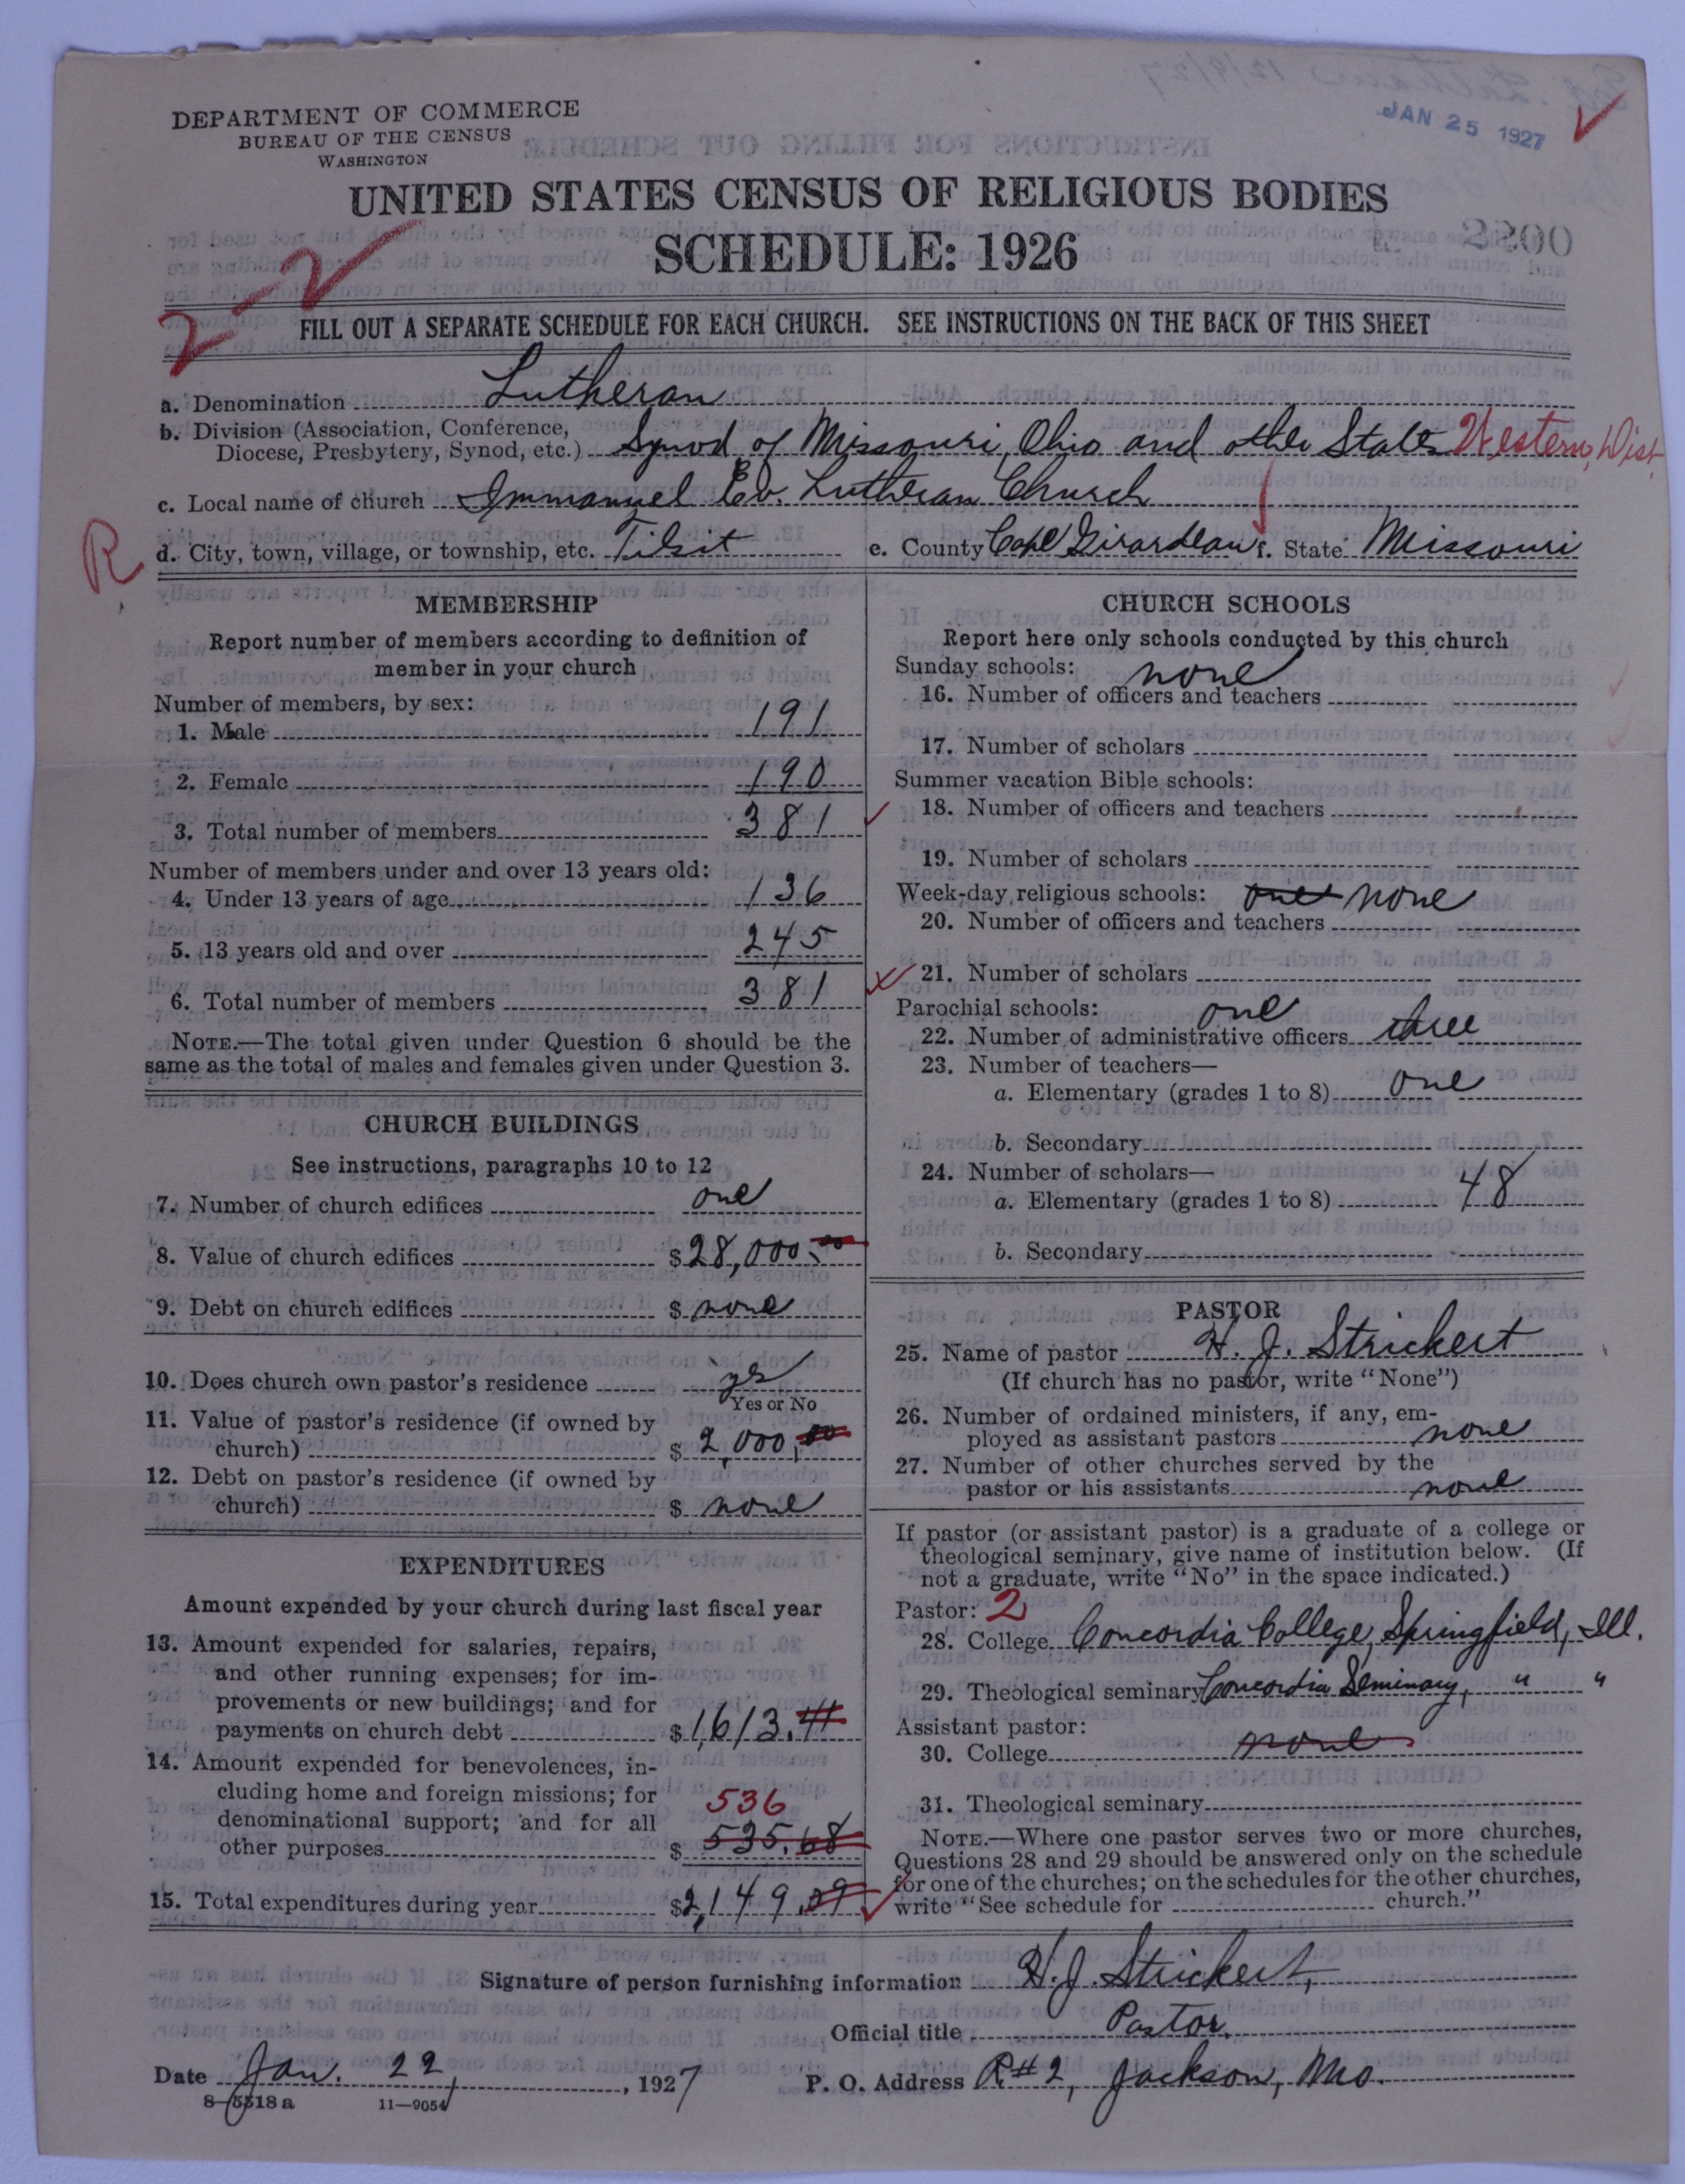 JAN 25 1927
DEPARTMENT OF COMMERCE
BUREAU OF THE CENSUS
WASHINGTON
UNITED STATES CENSUS OF RELIGIOUS BODIES
SCHEDULE: 1926
2-2
FILL OUT A SEPARATE SCHEDULE FOR EACH CHURCH. SEE INSTRUCTIONS ON THE BACK OF THIS SHEET
a. Denomination Lutheran
b. Division (Association, Conference,
Diocese, Presbytery, Synod, etc.) Synod of Missouri, Ohio and other States Western Dist.
c. Local name of church Immanuel Ev. Lutheran Church
R
d. City, town, village, or township, etc. Tilsit e. County Cape Girardeau f. State Missouri
MEMBERSHIP
Report number of members according to definition of
member in your church
Number of members, by sex:
1. Male 191
2. Female 190
3. Total number of members 381
Number of members under and over 13 years old:
4. Under 13 years of age 136
5. 13 years old and over 245
6. Total number of members 381
NOTE.—The total given under Question 6 should be the
same as the total of males and females given under Question 3.
CHURCH BUILDINGS
See instructions, paragraphs 10 to 12
7. Number of church edifices one
8. Value of church edifices $28,000.00
9. Debt on church edifices $ none
10. Does church own pastor's residence yes
Yes or No
11. Value of pastor's residence (if owned by
church) $ 2,000.00
12. Debt on pastor's residence (if owned by
church) $ none
EXPENDITURES
Amount expended by your church during last fiscal year
13. Amount expended for salaries, repairs,
and other running expenses; for im-
provements or new buildings; and for
payments on church debt $1,613.41
14. Amount expended for benevolences, in-
cluding home and foreign missions; for
denominational support; and for all
536
other purposes $ 535.68
15. Total expenditures during year $2,149.09
CHURCH SCHOOLS
Report here only schools conducted by this church
Sunday schools: none
16. Number of officers and teachers
17. Number of scholars
Summer vacation Bible schools:
18. Number of officers and teachers
19. Number of scholars
Week-day religious schools: one none
20. Number of officers and teachers
21. Number of scholars
Parochial schools: one
22. Number of administrative officers three
23. Number of teachers—
a. Elementary (grades 1 to 8) one
b. Secondary
24. Number of scholars—
a. Elementary (grades 1 to 8) 48
b. Secondary
PASTOR
25. Name of pastor H. J. Strickert
(If church has no pastor, write "None")
26. Number of ordained ministers, if any, em-
ployed as assistant pastors none
27. Number of other churches served by the
pastor or his assistants none
If pastor (or assistant pastor) is a graduate of a college or
theological seminary, give name of institution below. (If
not a graduate, write "No" in the space indicated.)
Pastor: 2
28. College Concordia College, Springfield, Ill.
29. Theological seminary Concordia Seminary, " "
Assistant pastor:
30. College none
31. Theological seminary
NOTE.—Where one pastor serves two or more churches,
Questions 28 and 29 should be answered only on the schedule
for one of the churches; on the schedules for the other churches,
write "See schedule for church."
Signature of person furnishing information H. J. Strickert,
Official title Pastor.
Date Jan. 22, 1927 P. O. Address R#2, Jackson, Mo.
8-5518a 11-9054